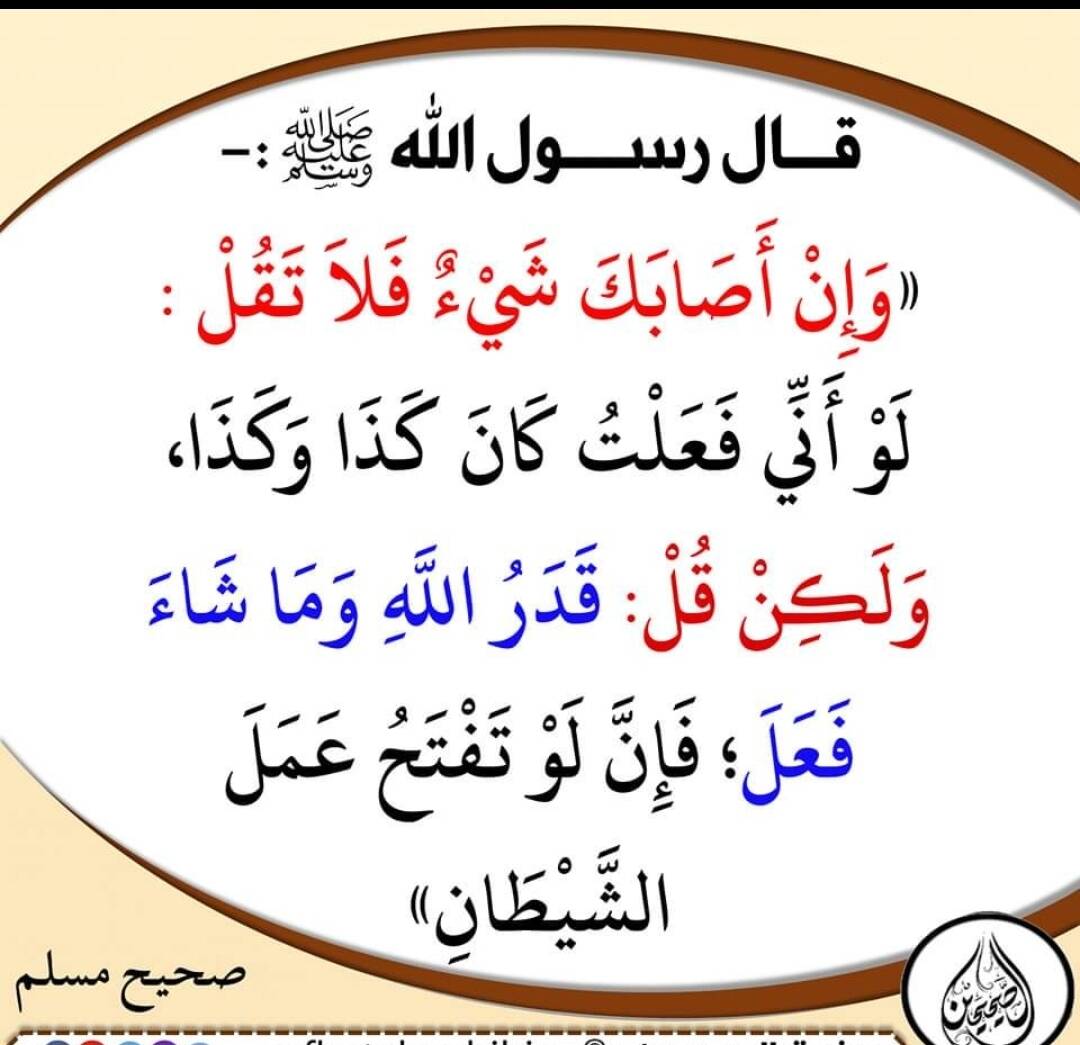 قال رسول الله ﷺ :-
«وَإِنْ أَصَابَكَ شَيْءٌ فَلاَ تَقُلْ :
لَوْ أَنِّي فَعَلْتُ كَانَ كَذَا وَكَذَا،
وَلَكِنْ قُلْ: قَدَرُ اللَّهِ وَمَا شَاءَ
فَعَلَ؛ فَإِنَّ لَوْ تَفْتَحُ عَمَلَ
الشَّيْطَانِ»
صحيح مسلم